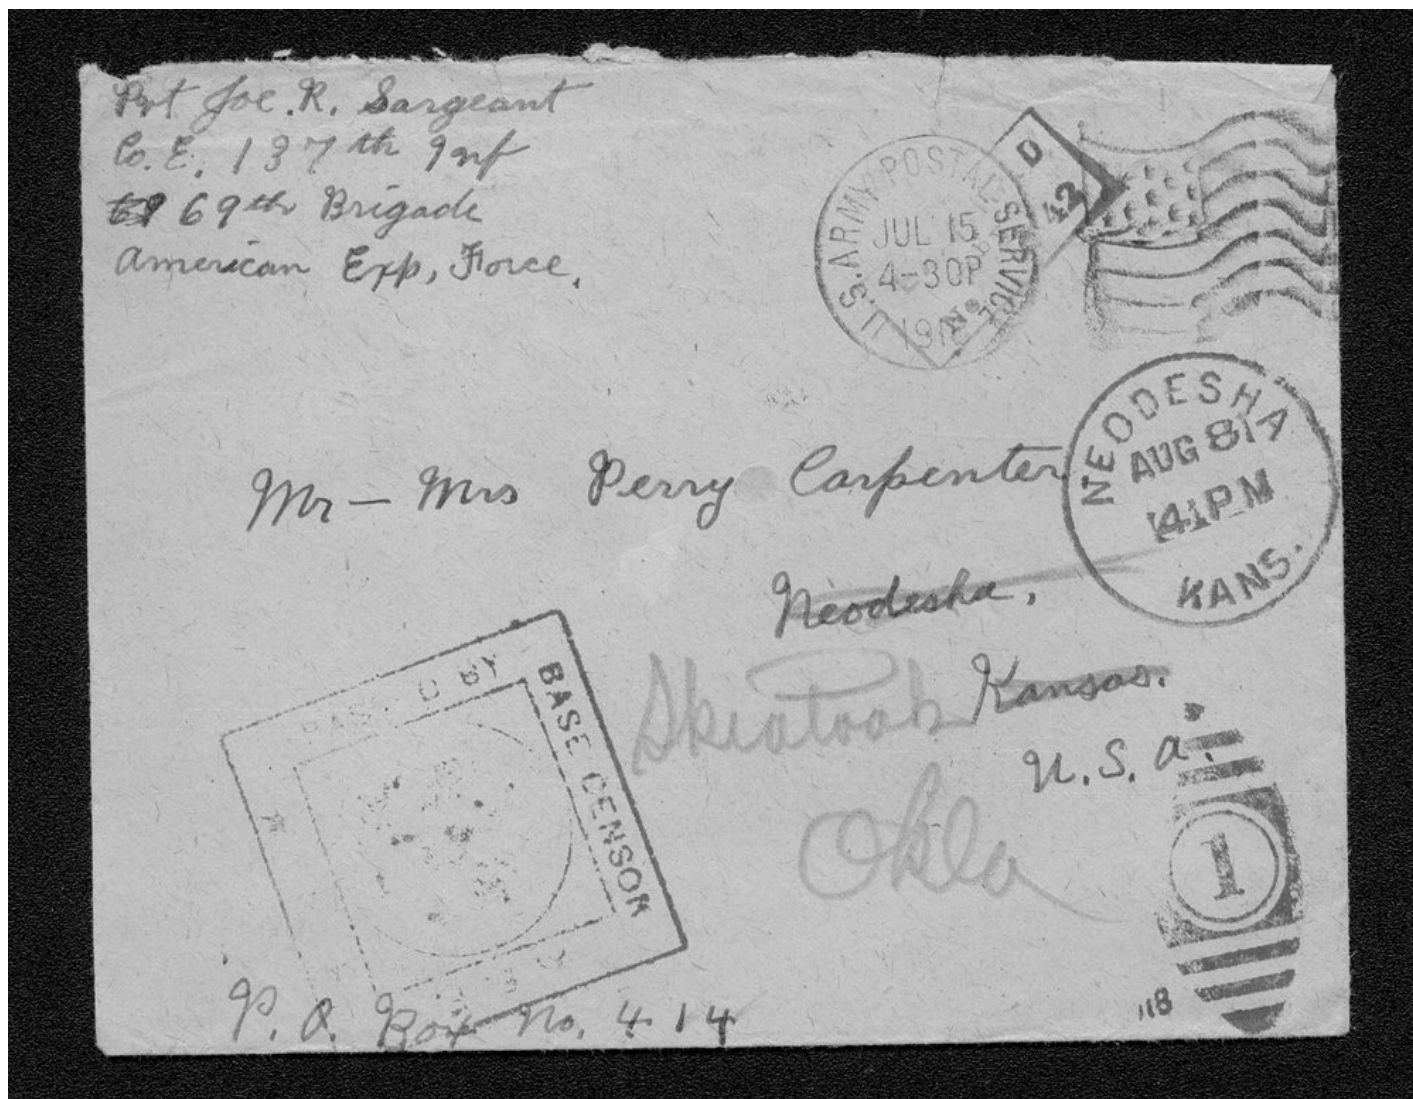 Pvt Joe. R. Sargeant
Co. E, 137th Inf
69th Brigade
American Exp, Force.
U.S. ARMY POSTAL SERVICE
JUL 15
4-30P
D
42
NEODESHA
AUG 8
41PM
KANS.
Mr – Mrs Perry Carpenter
Neodesha,
Kansas.
U.S.A.
Skiatook
Okla
BASE CENSOR
BY
1
P.O. Box No. 414